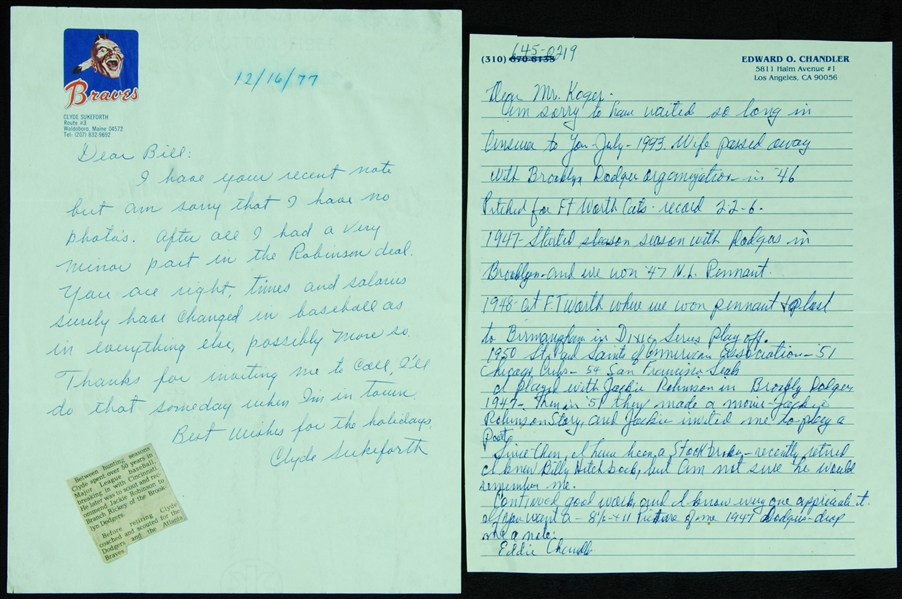 Braves
CLYDE SUKEFORTH
Route #3
Waldoboro, Maine 04572
Tel. (207) 832-9692
12/16/77
Dear Bill:
I have your recent note
but am sorry that I have no
photo's. After all I had a very
minor part in the Robinson deal.
You are right, times and salaries
surely have changed in baseball as
in everything else, possibly more so.
Thanks for inviting me to call, I'll
do that someday when I'm in town.
Best Wishes for the holidays,
Clyde Sukeforth
Between hunting seasons
Clyde spent over 50 years in
Major League baseball,
breaking in with Cincinnati.
He later was to scout and rec-
ommend Jackie Robinson to
Branch Rickey of the Brook-
lyn Dodgers.
Before retiring Clyde
coached and scouted for the
Dodgers and the Atlanta
Braves.
645-0219
(310) 670-8135
EDWARD O. CHANDLER
5811 Halm Avenue #1
Los Angeles, CA 90056
Dear Mr. Koger.
Am sorry to have waited so long in
Answer to You July - 1993. Wife passed away
with Brooklyn Dodger organization in '46
Pitched for FT Worth Cats - record 22-6.
1947 - Started season season with Dodgers in
Brooklyn - and we won '47 N.L. Pennant.
1948 - at FT Worth where we won pennant & lost
to Birmingham in Dixie Series Play off.
1950 St Paul Saints of American Association - '51
Chicago Cubs - 54 San Francisco Seals
I played with Jackie Robinson in Brookly Dodger
1947 - Then in '51 they made a movie Jackie
Robinson Story, and Jackie invited me to play a
part.
Since then, I have been a Stock broker - recently retired
I knew Billy Hitchcock, but am not sure he would
remember me.
Continued good work, and I know every one appreciate it
If you want a - 8½ - 11 Picture of me 1947 Dodgers - drop
me a note.
Eddie Chandler